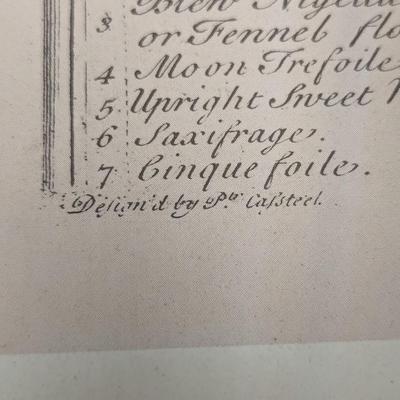 3 Blew Nigella
or Fennel flo
4 Moon Trefoile
5 Upright Sweet
6 Saxifrage.
7 Cinque foile.
Design'd by Pr. Casteel.